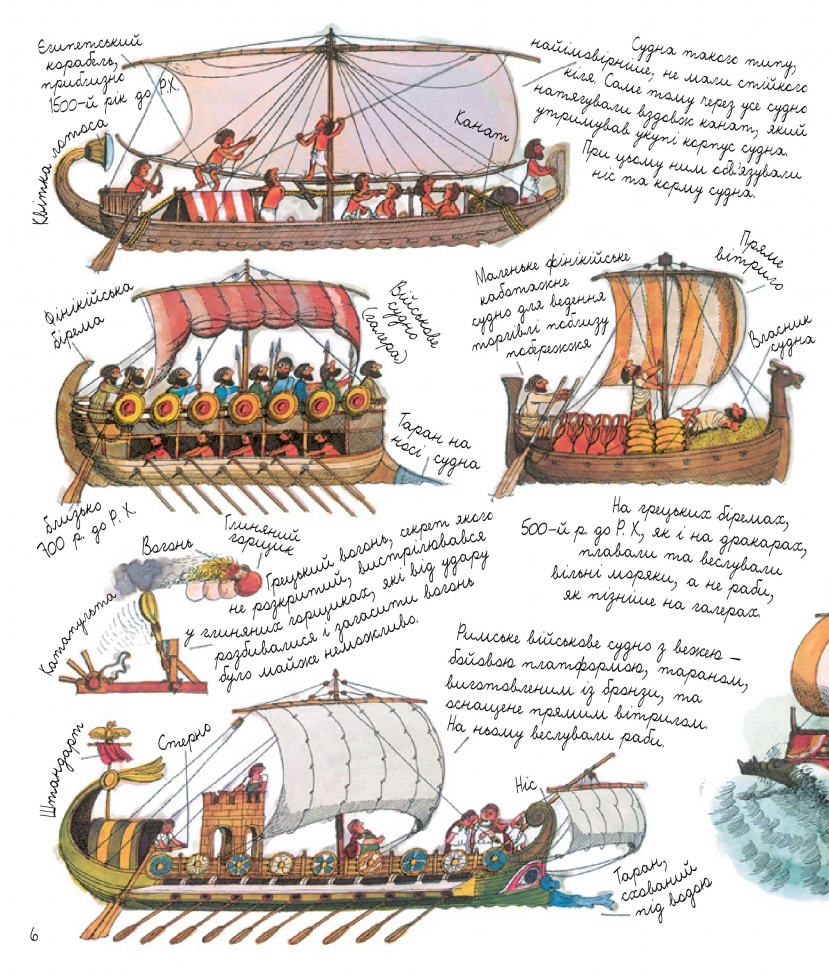 Єгипетський
корабель,
приблизно
1500-й рік до Р.Х.
Квітка лотоса
Канат
Судна такого типу,
найімовірніше, не мали стійкого
кіля. Саме тому через усе судно
натягували вздовж канат, який
утримував укупі корпус судна.
При цьому ним обв'язували
ніс та корму судна.
Фінікійська
бірема
Військове
судно
(галера)
Таран на
носі судна
близько
700 р. до Р. Х.
Маленьке фінікійське
каботажне
судно для ведення
торгівлі поблизу
побережжя
Пряме
вітрило
Власник
судна
На грецьких біремах,
500-й р. до Р. Х., як і на дракарах,
плавали та веслували
вільні моряки, а не раби,
як пізніше на галерах.
Вогонь
Глиняний
горщик
Катапульта
Грецький вогонь, секрет якого
не розкритий, вистрілювався
у глиняних горщиках, які від удару
розбивалися і загасити вогонь
було майже неможливо.
Римське військове судно з вежею –
бойовою платформою, тараном,
виготовленим із бронзи, та
оснащене прямим вітрилом.
На ньому веслували раби.
Штандарт
Стерно
Ніс
Таран,
схований
під водою
6